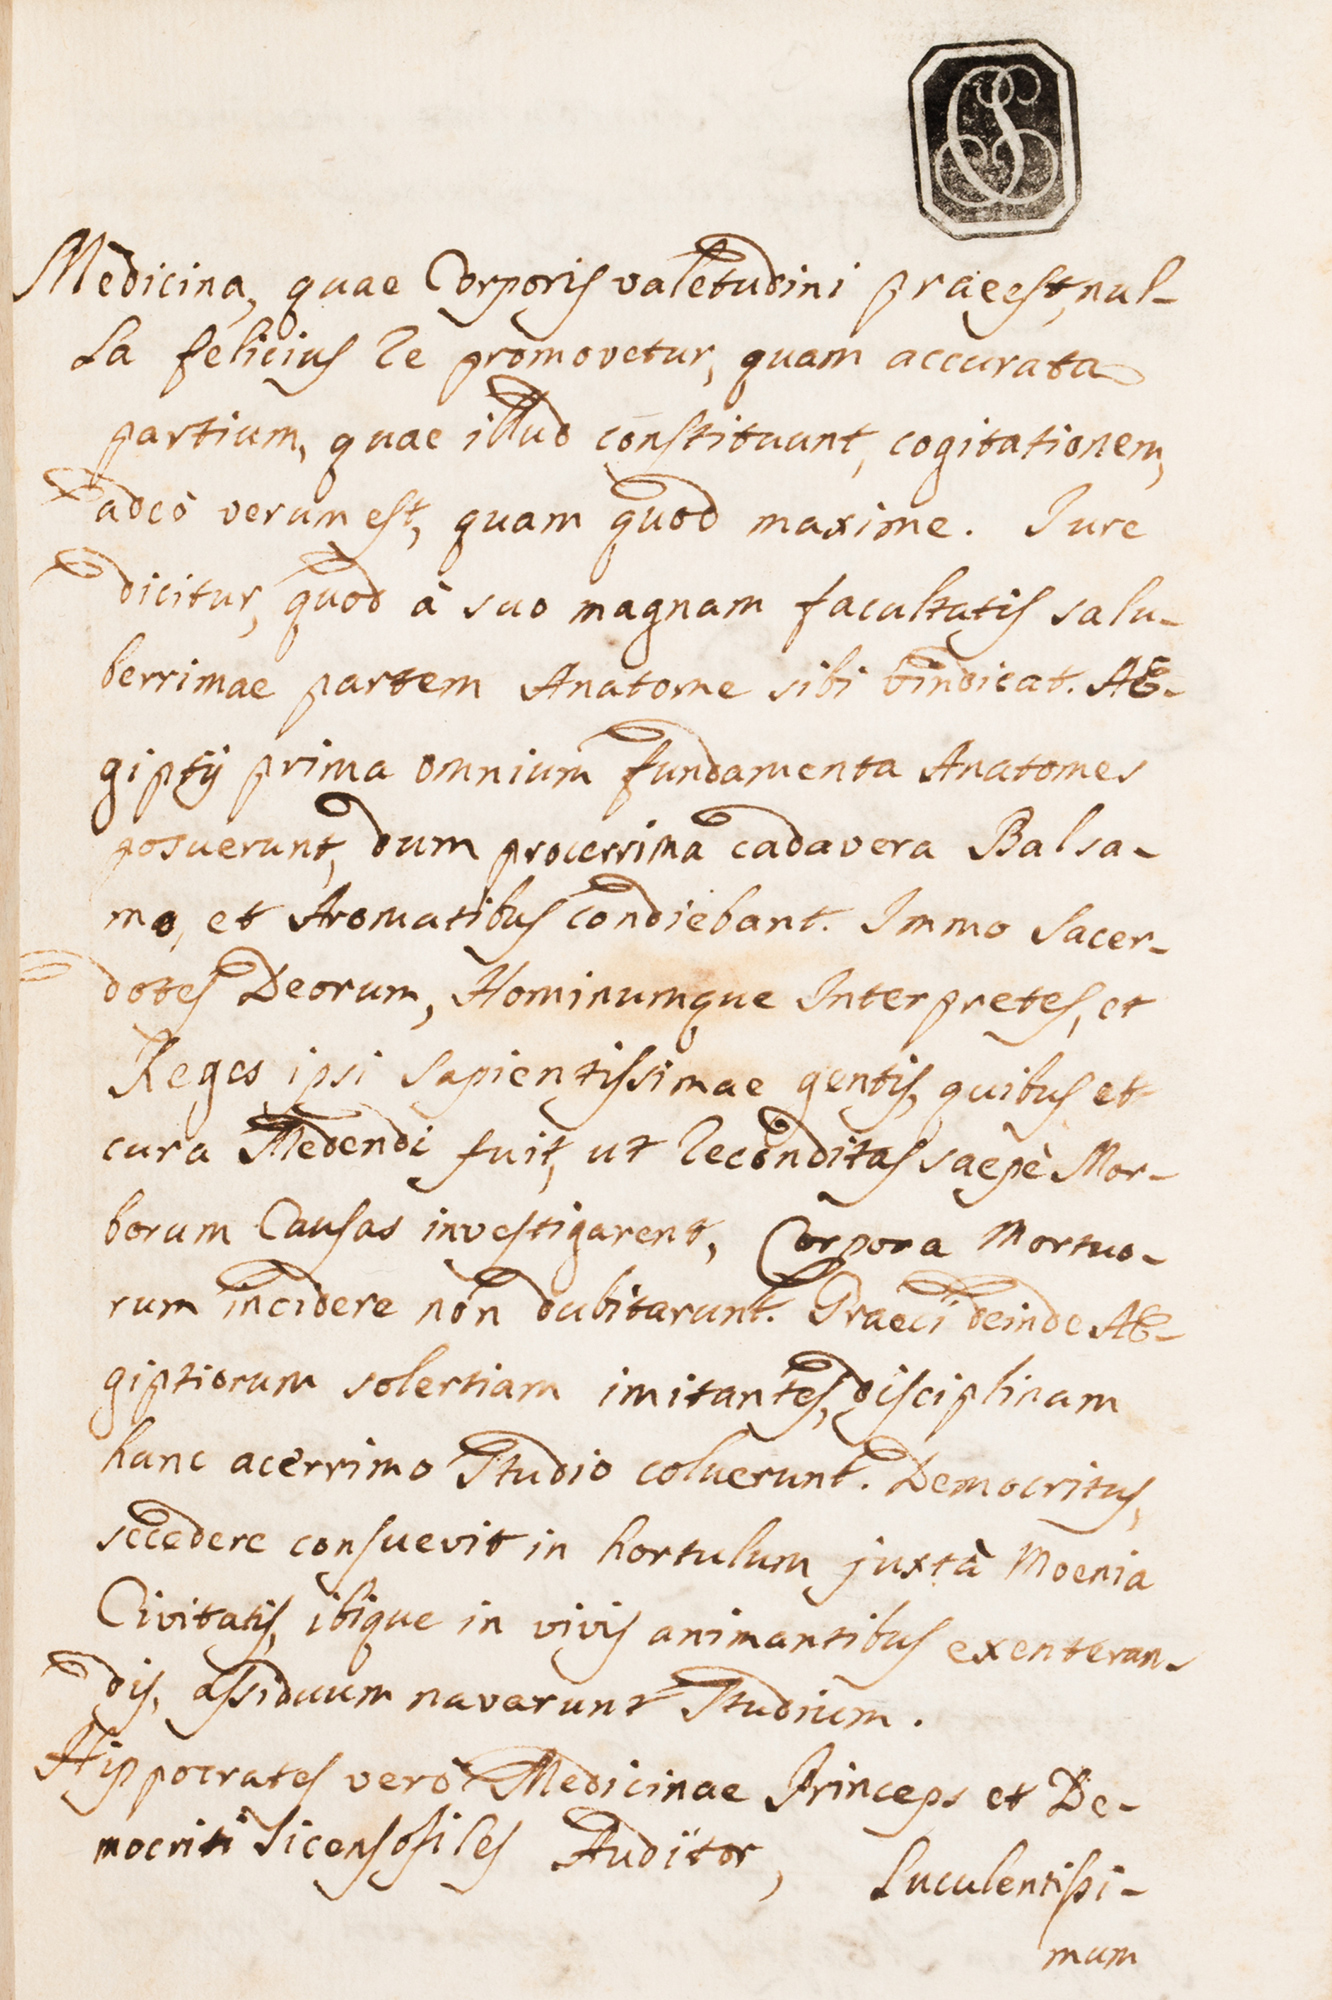 Medicina, quae Corporis valetudini praeest, nul-
la felicius re promovetur, quam accurata
partium, quae illud constituunt, cogitationem,
adeò verum est, quam quod maxime. Iure
dicitur, quod à suo magnam facultatis salu-
berrimae partem Anatome sibi vindicat. AE-
giptij prima omnium fundamenta Anatomes
posuerunt, dum procerrima cadavera Balsa-
mo, et Aromatibus condiebant. Immo Sacer-
dotes Deorum, Hominumque Interpretes, et
Reges ipsi Sapientissimae gentis, quibus et
cura Medendi fuit, ut reconditas saepè Mor-
borum Causas investigarent, Corpora Mortuo-
rum incidere non dubitarunt. Graeci deinde AE-
giptiorum solertiam imitantes, disciplinam
hanc acerrimo Studio coluerunt. Democritus,
secedere consuevit in hortulum juxtà Moenia
Civitatis, ibique in vivis animantibus exenteran-
dis, assiduum navarunt Studium.
Hippocrates verò Medicinae Princeps et De-
mocriti Auditor, Luculentissi-
mum